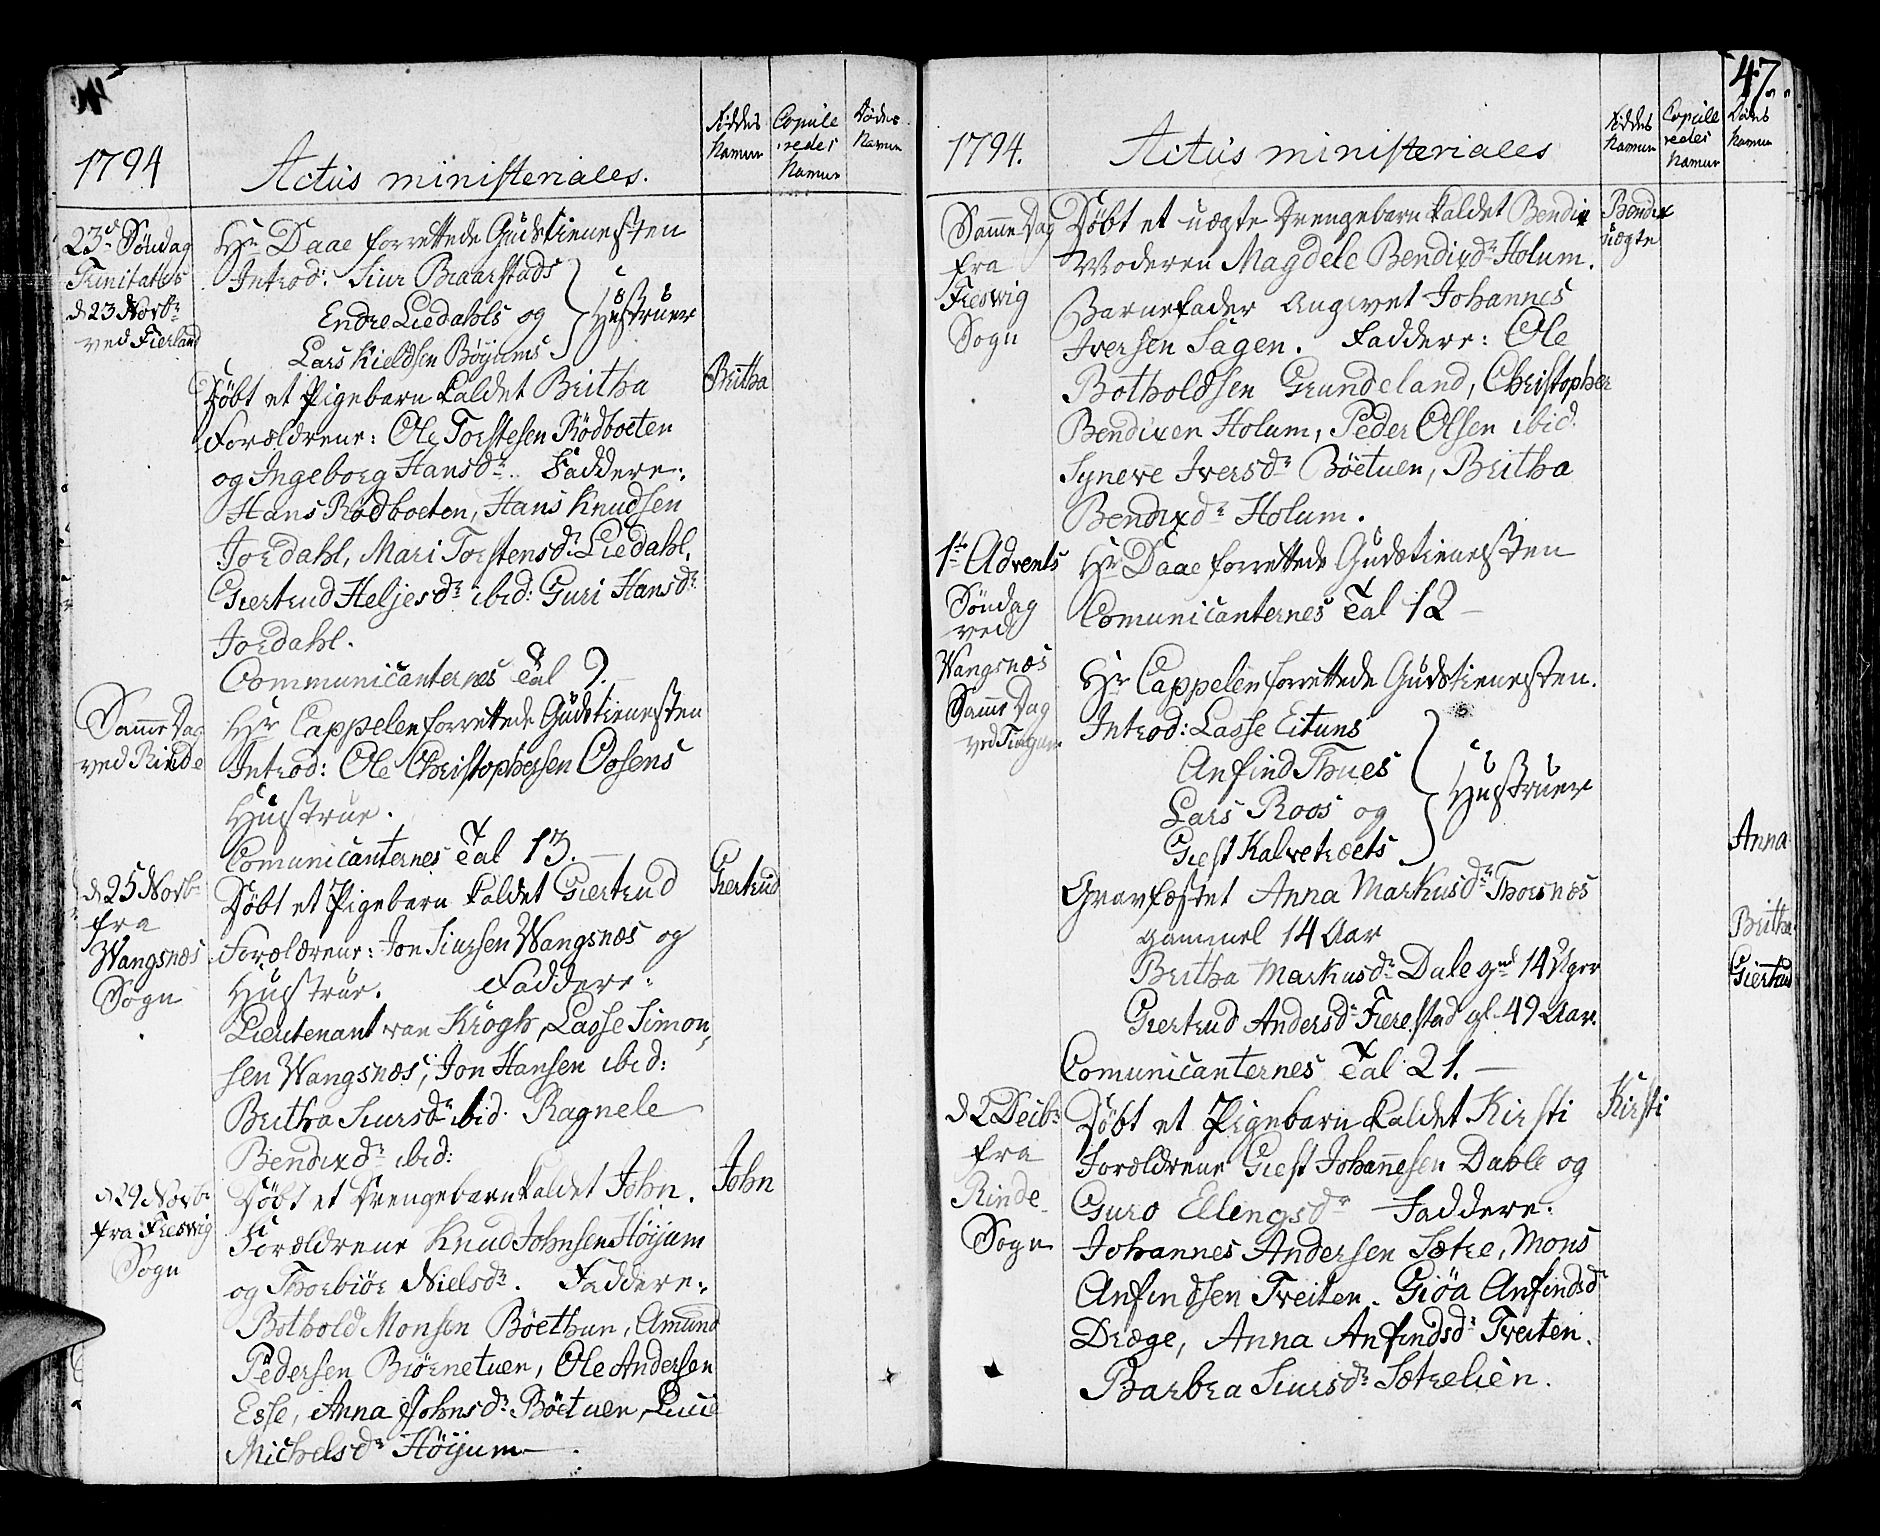 1794
Actus ministeriales.
Føddes Namun
Copule redes Namun
Dødes Namun
23de Søndag
Trinitatis
d 23 Novbr
ved Fierland
Hr Daae forrettede Gudstienesten
Introd: Siur Braarstads
Endre Liedahls og
Lars Kieldsen Bøyums
Hustruer
Døbt et Pigebarn kaldet Britha
Britha
Forældrene: Ole Torstesen Rødboeten
og Ingeborg Hansdr. Faddere:
Hans Rødboeten, Hans Knudsen
Jordahl, Mari Torstensdr Liedahl,
Giertrud Heljesdr ibid: Guri Hansdr
Jordahl.
Communicanternes Tal 9.
Samme Dag
ved Rinde
Hr Cappelen forrettede Gudstienesten
Introd: Ole Christophersen Oosens
Hustrue.
Comunicanternes Tal 13.
d 25 Novbr
fra
Wangsnæs
Sogn
Døbt et Pigebarn kaldet Giertrud
Giertrud
Forældrene: Jon Siursen Wangsnæs og
Hustrue. Faddere:
Lieutenant van Krogh, Lasse Simon,
sen Wangsnæs, Jon Hansen ibid:
Britha Siursdr ibid. Ragnele
Bendixdr ibid:
d 29 Novbr
fra Fresvig
Sogn
Døbt et Drengebarn kaldet John.
John
Forældrene Knud Johnsen Høijum
og Thorbiør Nielsdr. Faddere:
Bothold Monsen Böethun, Amund
Pedersen Biørnetuen, Ole Andersen
Esse, Anna Johnsdr Böetuen, Lucie
Michelsdr Höijum
47.
1794.
Actus ministeriales
Føddes Namun
Copule redes Namun
Dødes Namun
Samme Dag
fra
Fresvig
Sogn
Døbt et uægte Drengebarn kaldet Bendix
Bendix
uægte
Moderen Magdele Bendixdr Holum.
Barnefader angivet Johannes
Iversen Sagen. Faddere: Ole
Botholdsen Grundeland, Christopher
Bendixen Holum, Peder Olsen ibid.
Syneve Iversdr Böetuen, Britha
Bendixdr Holum.
1te Advents
Søndag
ved
Wangsnæs
Hr Daae forrettede Gudstienesten
Comunicanternes Tal 12
Samme Dag
Hr Cappelen forrettede Gudstienesten.
Introd: Lasse Eituns
Anfind Thues
Lars Roos og
Giest Kalvetræets
Hustruer
Gravfæstet Anna Markusdr Thorsnæs
gammel 14 Aar
Anna
Britha Markusdr Dale gml 14 Uger
Britha
Giertrud Andersdr Fierestad gl. 49 Aar.
Giertrud
Comunicanternes Tal 21.
d 2 Decbr
fra
Rinde
Sogn
Døbt et Pigebarn kaldet Kirsti
Kirsti
Forældrene Giest Johannesen Dahle og
Guro Ellingsdr Faddere:
Johannes Andersen Sætre, Mons
Anfindsen Tveiten. Giöa Anfindsdr
Dræge, Anna Anfindsdr Tveiten.
Barbra Siursdr Sætrelien.